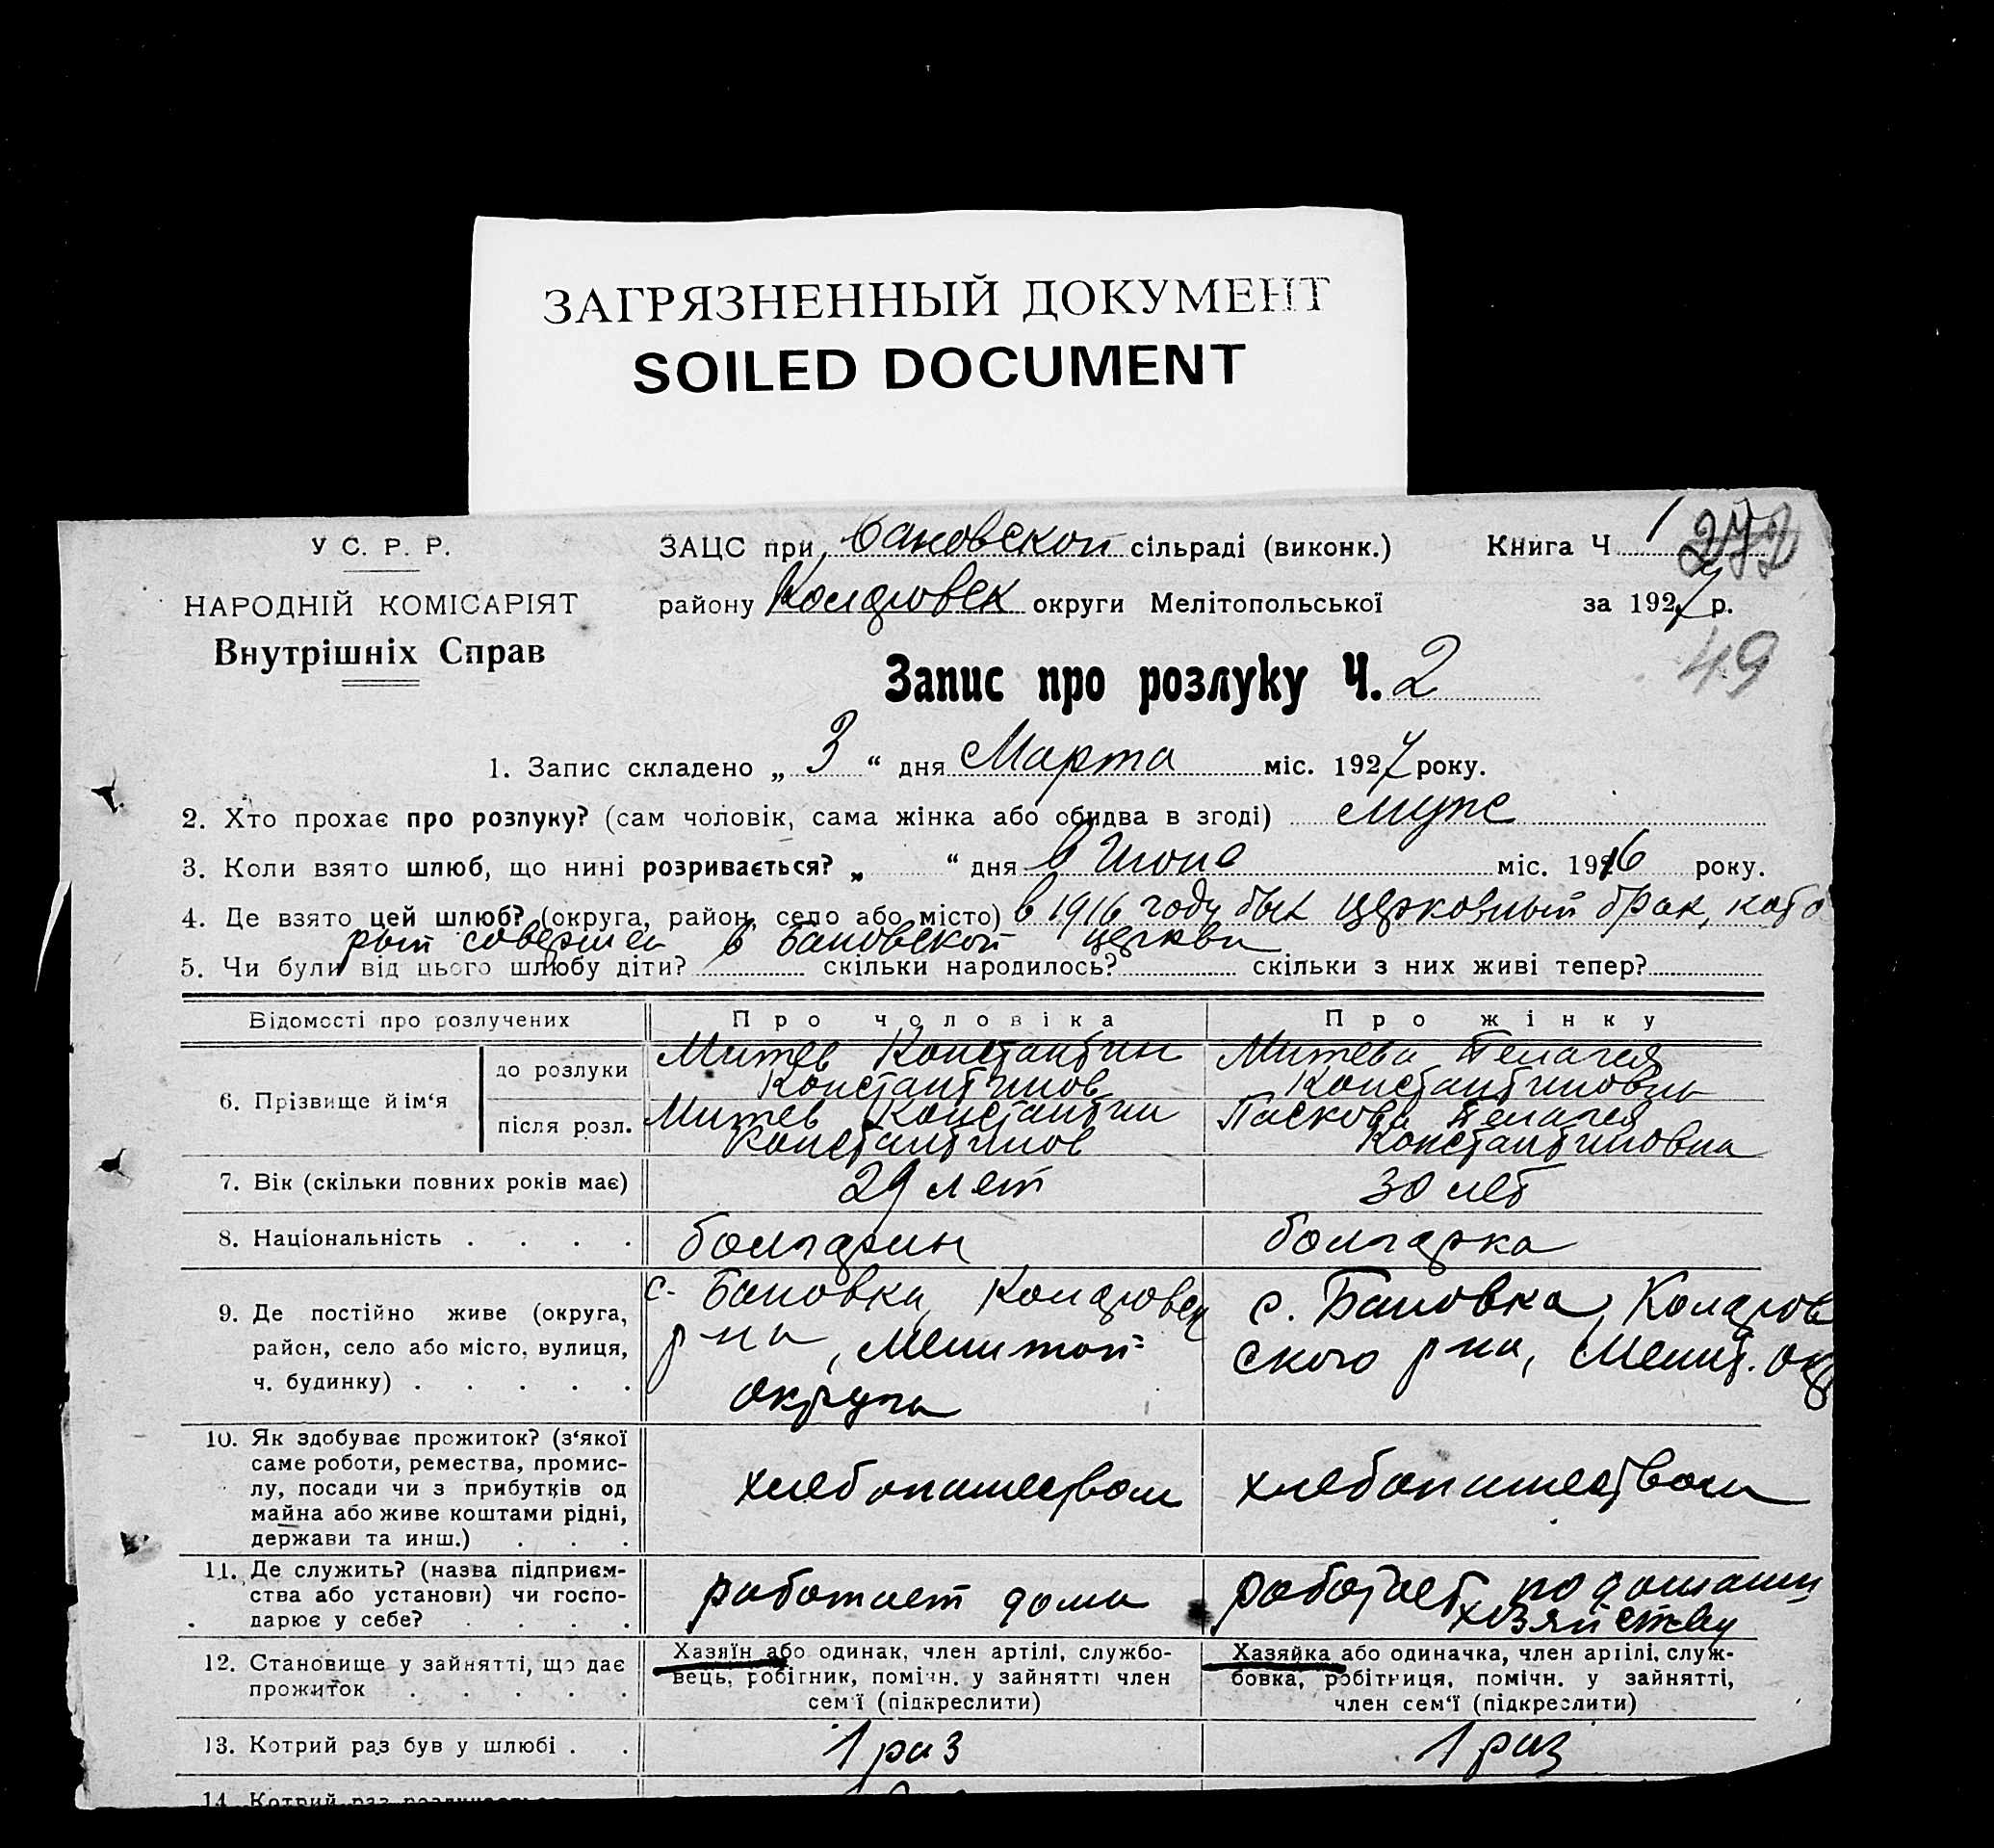 ЗАГРЯЗНЕННЫЙ ДОКУМЕНТ
SOILED DOCUMENT
У С. Р. Р.
НАРОДНІЙ КОМІСАРІЯТ
Внутрішніх Справ
ЗАЦС при Бановской сільраді (виконк.) Книга Ч 1 272
району Коларовск округи Мелітопольської за 1927 р.
49
Запис про розлуку Ч. 2
1. Запис складено „ 3 “ дня Марта міс. 1927 року.
2. Хто прохає про розлуку? (сам чоловік, сама жінка або обидва в згоді) муж
3. Коли взято шлюб, що нині розривається? „ “ дня в Июне міс. 1916 року.
4. Де взято цей шлюб? (округа, район, село або місто) в 1916 году был церковный брак, кото
рый совершен в Бановской церкви
5. Чи були від цього шлюбу діти? скільки народилось? скільки з них живі тепер?
Відомості про розлучених Про чоловіка Про жінку
6. Прізвище й ім‘я
до розлуки Митев Константин Константинов Митева Пелагея Константиновна
після розл. Митев Константин Константинов Паскова Пелагея Константиновна
7. Вік (скільки повних років має) 29 лет 30 лет
8. Національність . . . . болгарин болгарка
9. Де постійно живе (округа, с. Бановка, Коларовск с. Бановка, Коларов
район, село або місто, вулиця, р-на, Мелитоп= ского р-на, Мелит. окр
ч. будинку) . . . . . округа
10. Як здобуває прожиток? (з‘якої
саме роботи, ремества, промис-
лу, посади чи з прибутків од хлебопашеством хлебопашеством
майна або живе коштами рідні,
держави та инш.) . . .
11. Де служить? (назва підприєм-
ства або установи) чи госпо- работает дома работает по домашн
дарює у себе? . . . . хозяйству
12. Становище у зайнятті, що дає Хазяїн або одинак, член артілі, службо- Хазяйка або одиначка, член артілі, служ-
прожиток . . . . . вець, робітник, помічн. у зайнятті член бовка, робітниця, помічн. у зайнятті,
сем‘ї (підкреслити) член сем‘ї (підкреслити)
13. Котрий раз був у шлюбі . . 1 раз 1 раз
14. Котрий раз